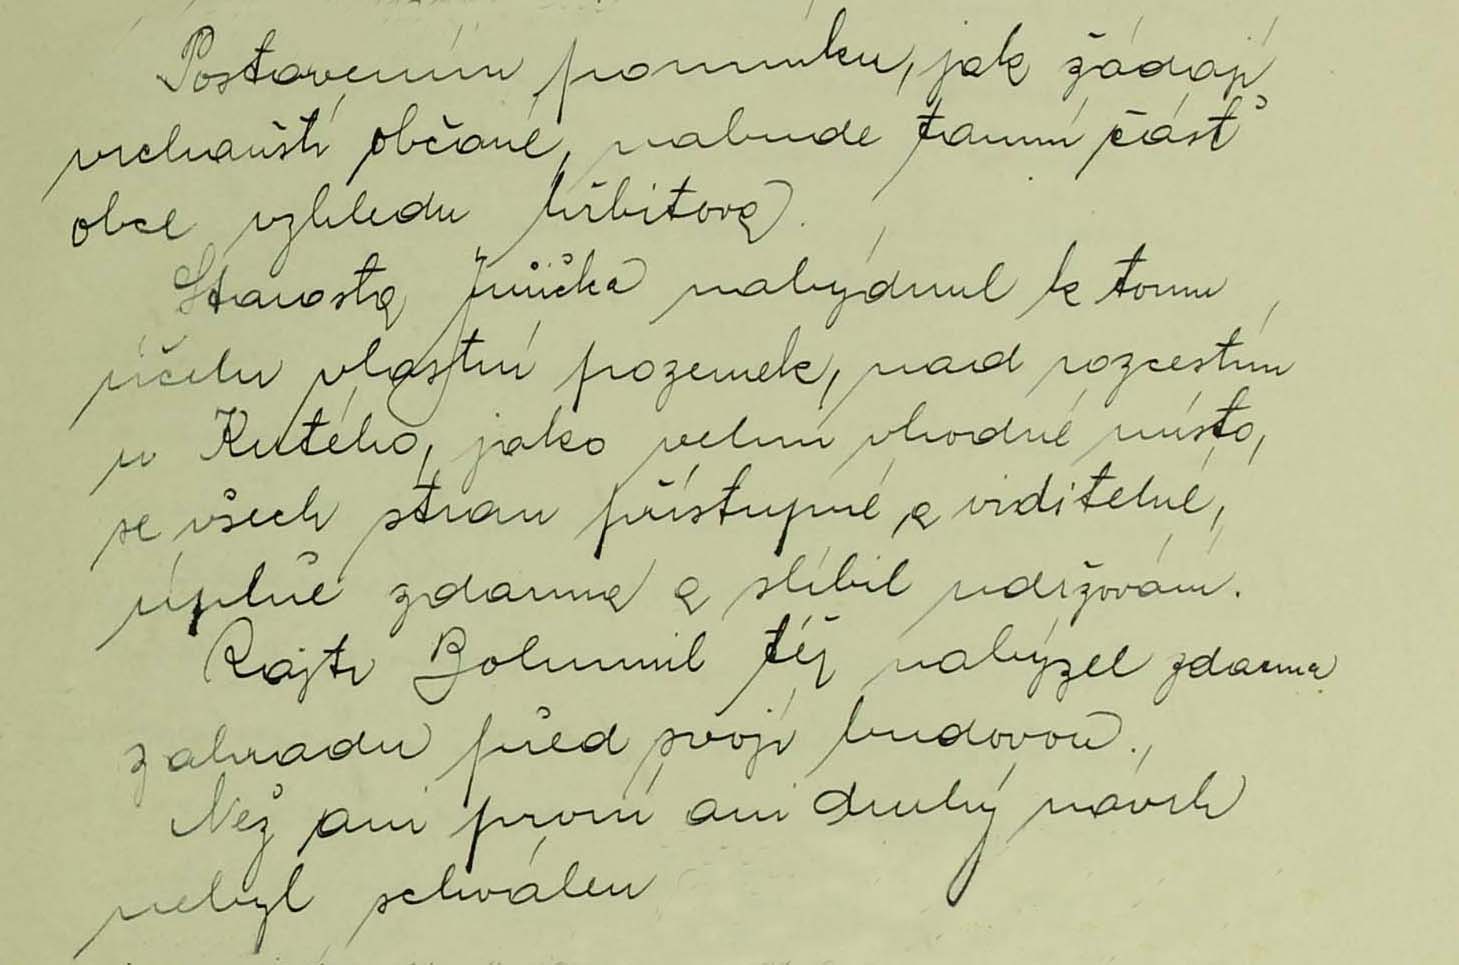 Postavením pomníku, jak žádají
vrchanští občané, nabude tamní část
obce vzhledu hřbitova.
Starosta Jmíčka nabýdnul k tomu
účelu vlastní pozemek, nad rozcestím
u Kutého, jako velmi vhodné místo,
se všech stran přístupné a viditelné,
úplně zdarma a slíbil udržování.
Rajtr Bohumil též nabýzel zdarma
zahradu před svojí budovou.,
Než ani první ani druhý návrh
nebyl schválen